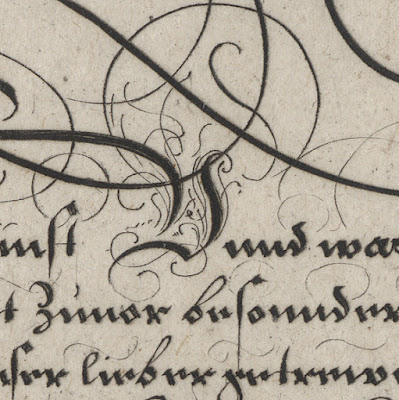 unſt und was
t Zuuor beſonnder
nſer lieber getrewe